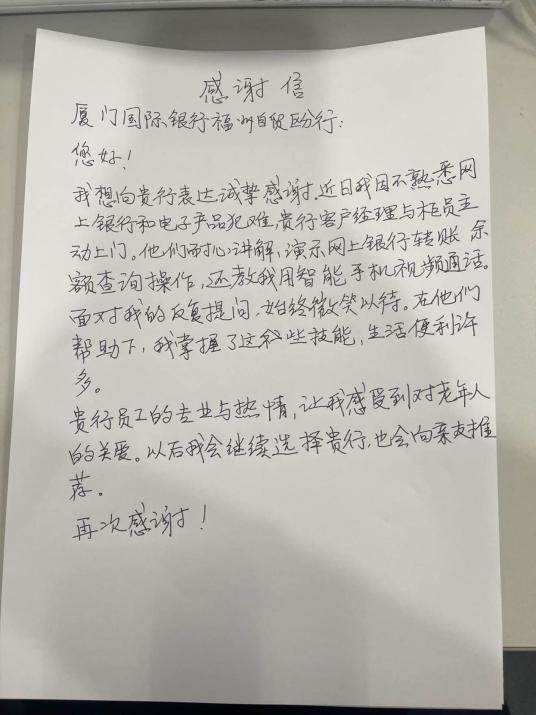 感谢信
厦门国际银行福州自贸区分行：
您好！
我想向贵行表达诚挚感谢。近日我因不熟悉网
上银行和电子产品犯难，贵行客户经理与柜员主
动上门。他们耐心讲解，演示网上银行转账 余
额查询操作，还教我用智能手机视频通话。
面对我的反复提问，始终微笑以待。在他们
帮助下，我掌握了这些技能，生活便利许
多。
贵行员工的专业与热情，让我感受到对老年人
的关爱。以后我会继续选择贵行，也会向亲友推
荐。
再次感谢！